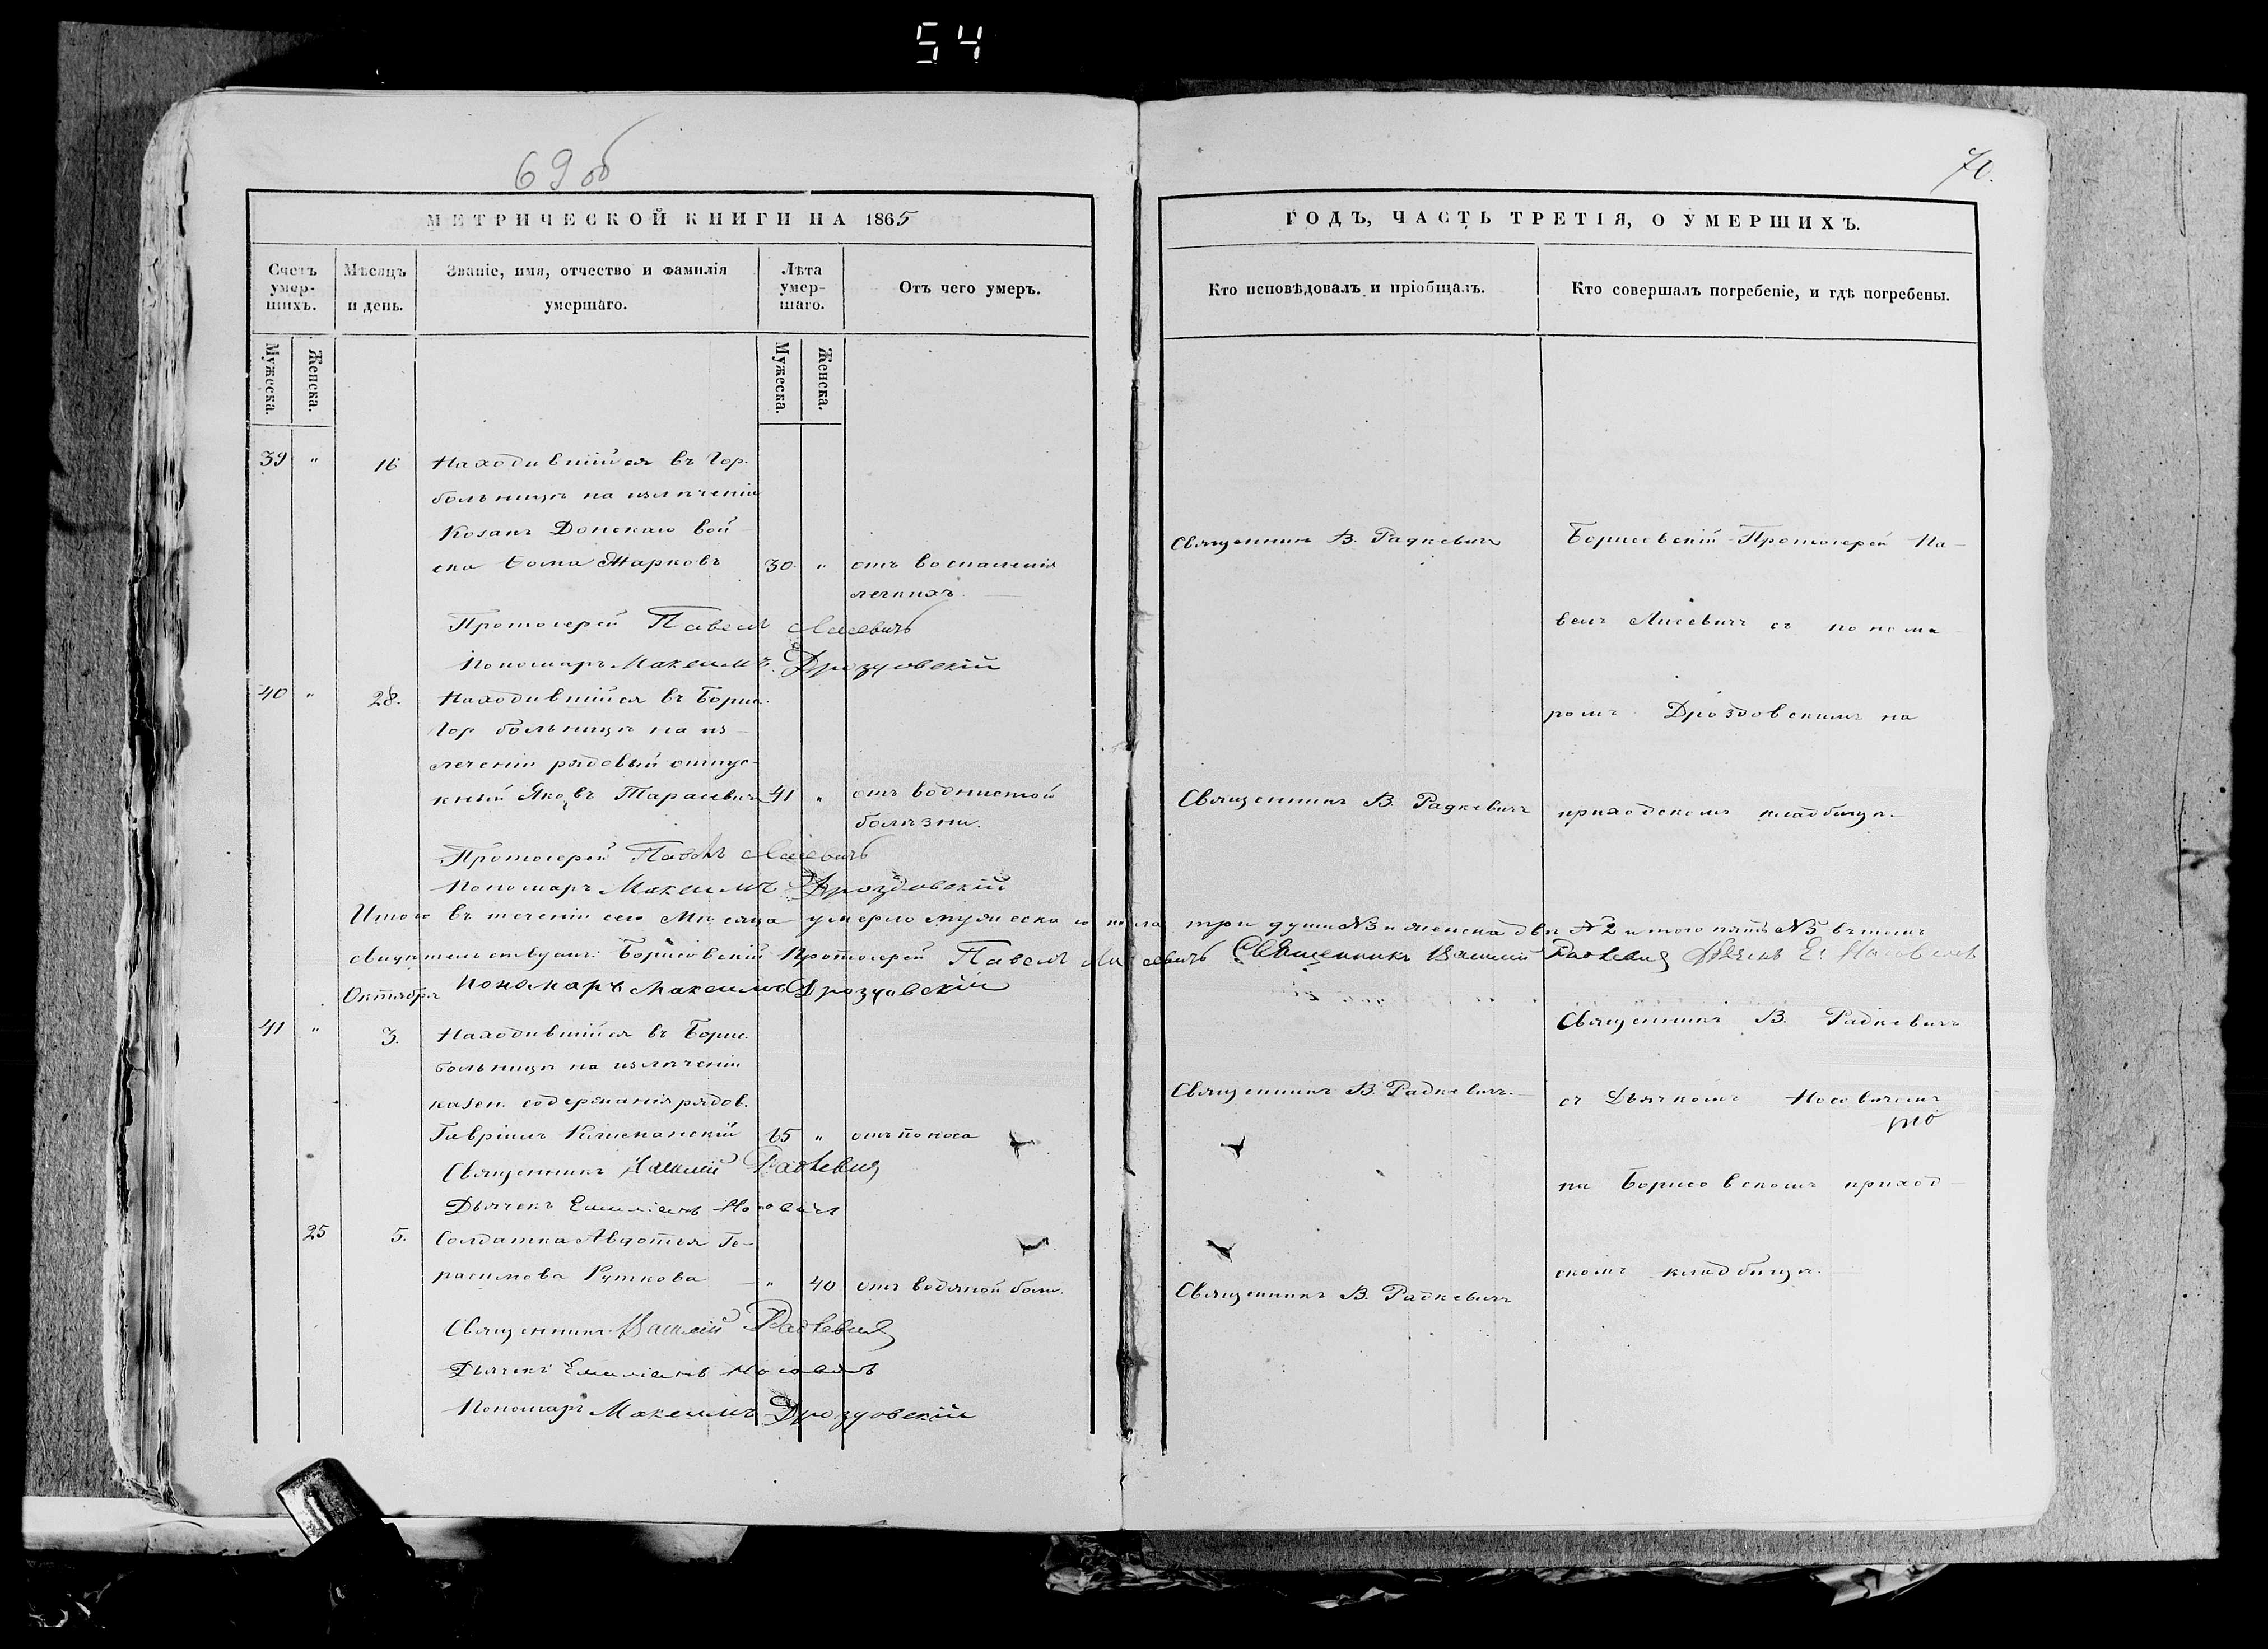 54
69 об
70.
МЕТРИЧЕСКОЙ КНИГИ НА 1865
Счетъ умер-шихъ.
Мѣсяцъ и день.
Званіе, имя, отчество и фамилія умершаго.
Лѣта умер-шаго.
Отъ чего умеръ.
Мужеска.
Женска.
Мужеска.
Женска.
39 " 16 Находившійся въ Гор.
больницѣ на излѣченіи
Козакъ Донскаго вой-
ска Ѳома Марковъ 30. " отъ воспаленія
легкихъ.
Протоіерей Павелъ Лисевичъ
Пономарь Максимъ Дроздовскій
40 " 28. Находившійся въ Борис.
Гор больницѣ на из-
леченіи рядовый отпус-
кный Яковъ Тарасевичъ 41 " отъ водянистой
болѣзни.
Протоіерей Павелъ Лисевичъ
Пономарь Максимъ Дроздовскій
Итого въ теченіи сего Мѣсяца умерло мужеска го пола три души №3 и женска двѣ №2 итого пять №5 въ томъ
свидѣтельствуемъ: Борисовскій Протоіерей Павелъ Лисевичъ Священникъ Василій Радкевичъ Дьячекъ Е. Носовичъ
Октября Пономарь Максимъ Дроздовскій
41 " 3. Находившійся въ Борис.
больницѣ на излѣченіи
казен. содержанія рядов.
Гавріилъ 65 " отъ поноса
Священникъ Василій Радкевичъ
Дьячекъ Емиліанъ Носовичъ
25 5. Солдатка Авдотья Ге-
расимова Руткова " 40 отъ водяной болѣ.
Священникъ Василій Радкевичъ
Дьячекъ Емиліанъ Носовичъ
Пономарь Максимъ Дроздовскій
ГОДЪ, ЧАСТЬ ТРЕТІЯ, О УМЕРШИХЪ.
Кто исповѣдовалъ и пріобщалъ.
Кто совершалъ погребеніе, и гдѣ погребены.
Священникъ В. Радкевичъ
Борисовскій Протоіерей Па-
велъ Лисевичъ съ понома
ромъ Дроздовскимъ на
Священникъ В. Радкевичъ
приходскомъ кладбищѣ.
Священникъ В. Радкевичъ
Священникъ В. Радкевичъ.
съ Дьячкомъ Носовичемъ
на Борисовскомъ приход
скомъ кладбищѣ.
Священникъ В. Радкевичъ